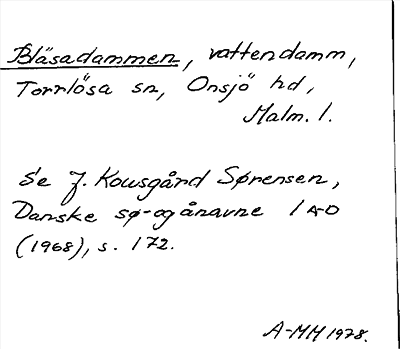 Bläsadammen, vattendamm,
Torrlösa sn, Onsjö hd,
Malm. l.
Se J. Kousgård Sørensen,
Danske sø- og ånavne 1 A-D
(1968), s. 172.
A-MH 1978.